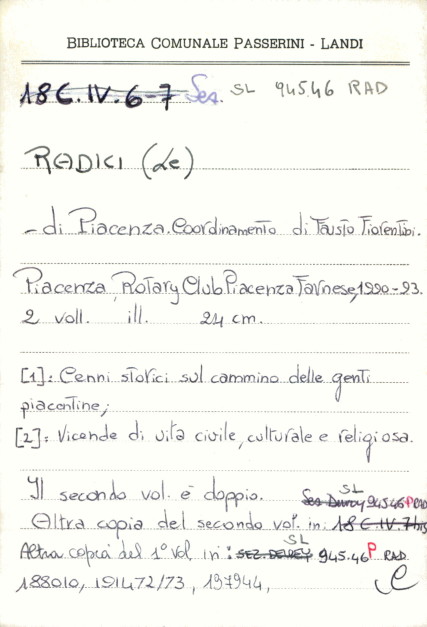 BIBLIOTECA COMUNALE PASSERINI - LANDI
18 C. IV. 6-7 Sez. SL 945.46 RAD
RADICI (Le)
- di Piacenza. Coordinamento di Fausto Fiorentini.
Piacenza, Rotary Club Piacenza Farnese, 1990-93.
2 voll. ill. 24 cm.
[1]: Cenni storici sul cammino delle genti
piacentine;
[2]: Vicende di vita civile, culturale e religiosa.
Il secondo vol. è doppio. Sez Dewey SL 945.46 P RAD
Altra copia del secondo vol. in: 18 C IV. 7 bis
Altra copia del 1° vol in: SEZ. DEWEY SL 945.46 P RAD
188010, 191472/73, 197944,